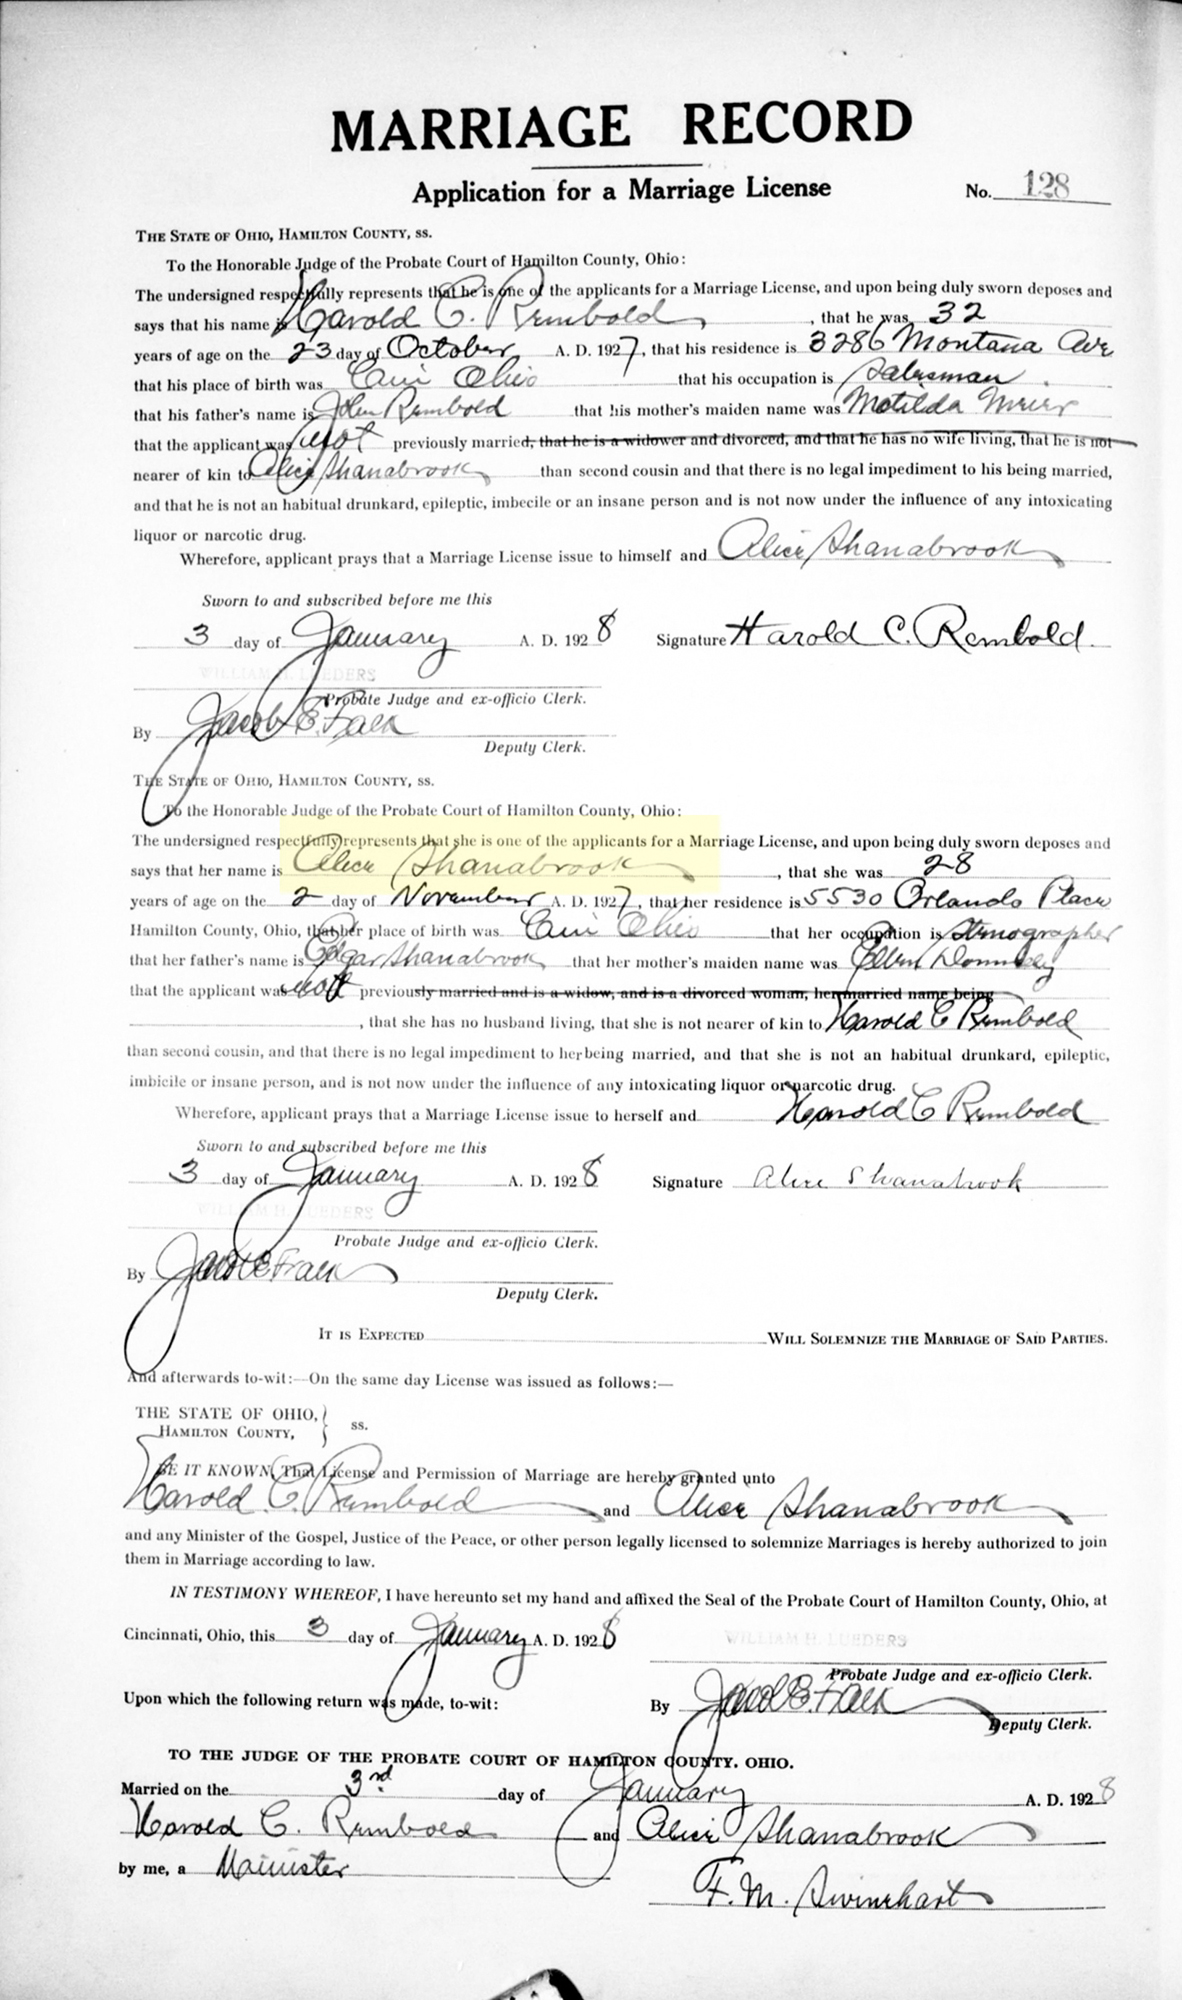 MARRIAGE RECORD
Application for a Marriage License No. 128
THE STATE OF OHIO, HAMILTON COUNTY, ss.
To the Honorable Judge of the Probate Court of Hamilton County, Ohio:
The undersigned respectfully represents that he is one of the applicants for a Marriage License, and upon being duly sworn deposes and
says that his name is Harold C. Rembold, that he was 32
years of age on the 23 day of October A. D. 1927, that his residence is 3286 Montana Ave
that his place of birth was Cin Ohio that his occupation is Salesman.
that his father's name is John Rembold that his mother's maiden name was Matilda Meier
that the applicant was not previously married, that he is a widower and divorced, and that he has no wife living, that he is not
nearer of kin to Alice Shanabrook than second cousin and that there is no legal impediment to his being married,
and that he is not an habitual drunkard, epileptic, imbecile or an insane person and is not now under the influence of any intoxicating
liquor or narcotic drug.
Wherefore, applicant prays that a Marriage License issue to himself and Alice Shanabrook
Sworn to and subscribed before me this
3 day of January A. D. 1928 Signature Harold C. Rembold.
WILLIAM H. LUEDERS
Probate Judge and ex-officio Clerk.
By Jacob E. Falk
Deputy Clerk.
THE STATE OF OHIO, HAMILTON COUNTY, ss.
To the Honorable Judge of the Probate Court of Hamilton County, Ohio:
The undersigned respectfully represents that she is one of the applicants for a Marriage License, and upon being duly sworn deposes and
says that her name is Alice Shanabrook, that she was 28
years of age on the 2 day of November A. D. 1927, that her residence is 5530 Orlando Place
Hamilton County, Ohio, that her place of birth was Cin Ohio that her occupation is Stenographer
that her father's name is Edgar Shanabrook that her mother's maiden name was Ellen
that the applicant was not previously married and is a widow, and is a divorced woman, her married name being
, that she has no husband living, that she is not nearer of kin to Harold C Rembold
than second cousin, and that there is no legal impediment to her being married, and that she is not an habitual drunkard, epileptic,
imbicile or insane person, and is not now under the influence of any intoxicating liquor or narcotic drug.
Wherefore, applicant prays that a Marriage License issue to herself and Harold C Rembold
Sworn to and subscribed before me this
3 day of January A. D. 1928 Signature Alice Shanabrook
WILLIAM H. LUEDERS
Probate Judge and ex-officio Clerk.
By Jacob E Falk
Deputy Clerk.
IT IS EXPECTED WILL SOLEMNIZE THE MARRIAGE OF SAID PARTIES.
And afterwards to-wit:—On the same day License was issued as follows:—
THE STATE OF OHIO,
HAMILTON COUNTY, } ss.
BE IT KNOWN, That License and Permission of Marriage are hereby granted unto
Harold C. Rembold and Alice Shanabrook
and any Minister of the Gospel, Justice of the Peace, or other person legally licensed to solemnize Marriages is hereby authorized to join
them in Marriage according to law.
IN TESTIMONY WHEREOF, I have hereunto set my hand and affixed the Seal of the Probate Court of Hamilton County, Ohio, at
Cincinnati, Ohio, this 3 day of January A. D. 1928
WILLIAM H. LUEDERS
Probate Judge and ex-officio Clerk.
Upon which the following return was made, to-wit: By Jacob E. Falk
Deputy Clerk.
TO THE JUDGE OF THE PROBATE COURT OF HAMILTON COUNTY. OHIO.
Married on the 3rd day of January A. D. 1928
Harold C. Rembold and Alice Shanabrook
by me, a Mainister
F. M. Swinehart